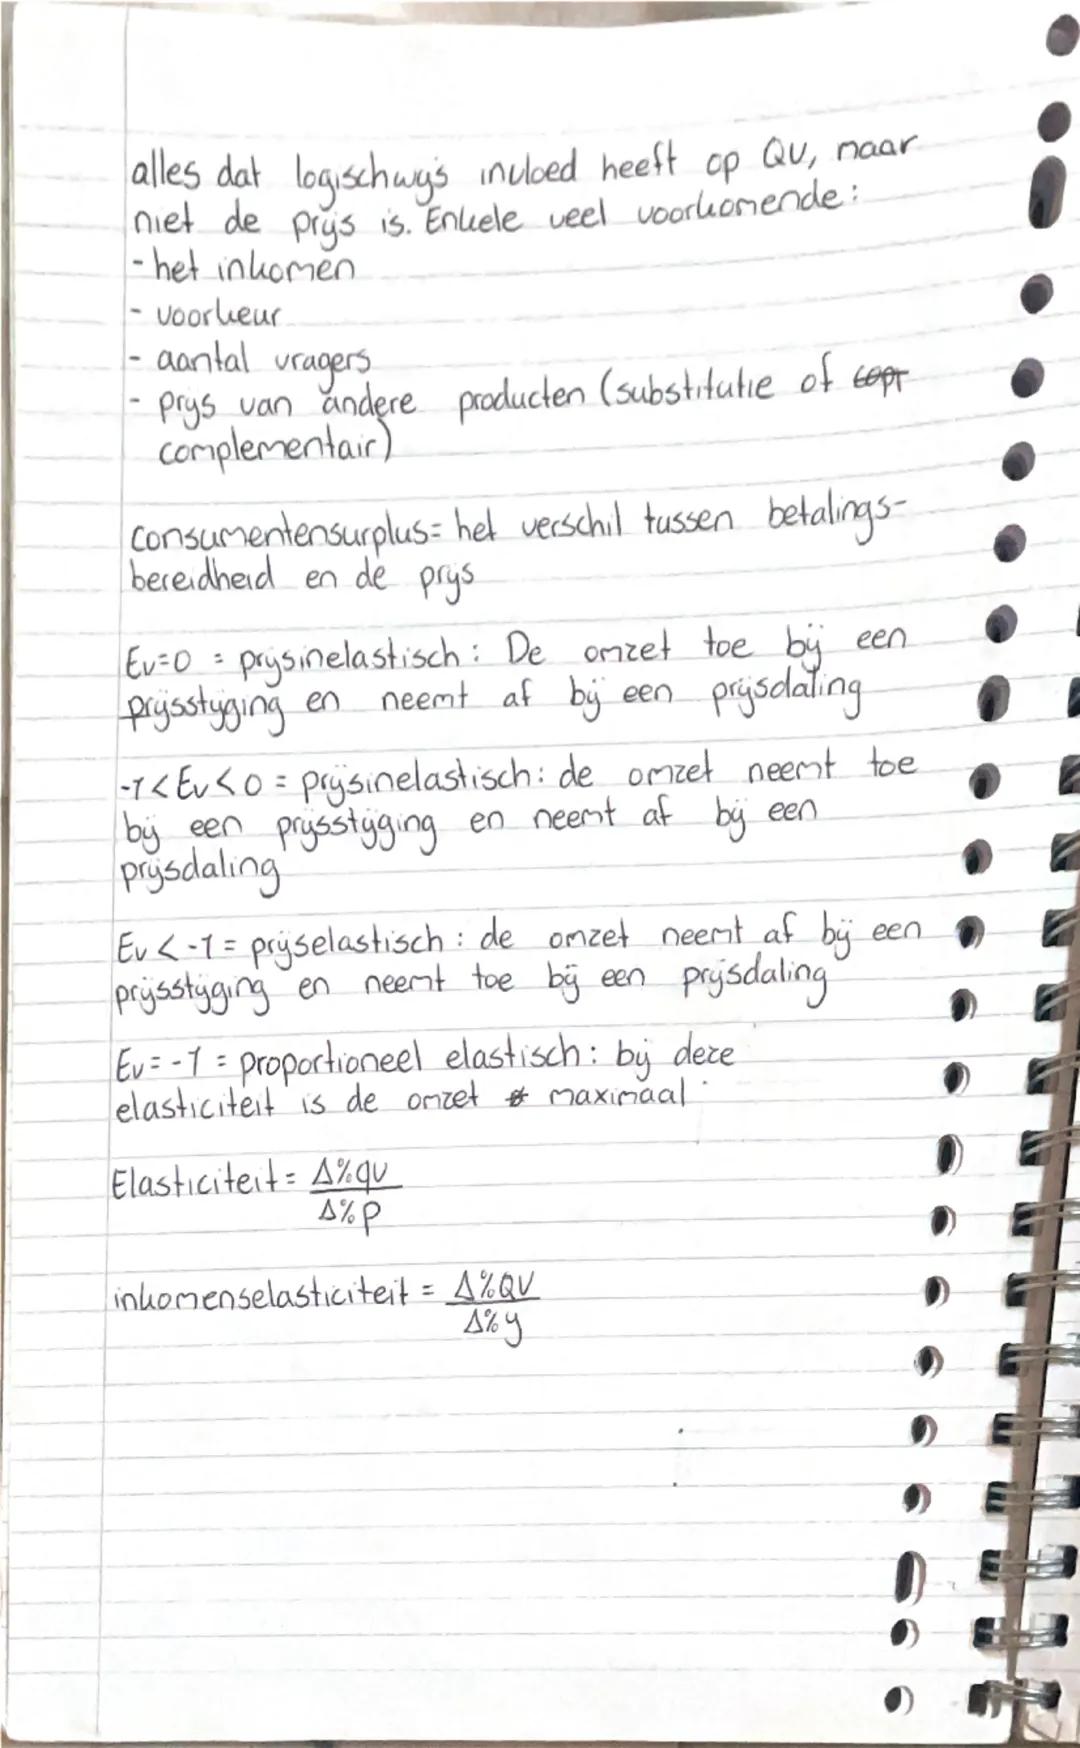 alles dat logischwijs invloed heeft op QV, maar
niet de prijs is. Enkele veel voorkomende:
- het inkomen
- voorkeur
- aantal vragers
- prijs van andere producten (substitutie of
complementair)
consumentensurplus= het verschil tussen betalings-
bereidheid en de prijs
Ev=0 = prijsinelastisch: De omzet toe bij een
prijsstijging en neemt af bij een prijsdaling
-1<Ev<0 = prijsinelastisch: de omzet neemt toe
bij een prijsstijging en neemt af bij een
prijsdaling
Ev<-1= prijselastisch: de omzet neemt af bij een
prijsstijging en neemt toe bij een prijsdaling
Ev=-1 = proportioneel elastisch: bij deze
elasticiteit is de omzet maximaal
Elasticiteit= Δ%qv
Δ%p
inkomenselasticiteit = Δ%QV
Δ%y